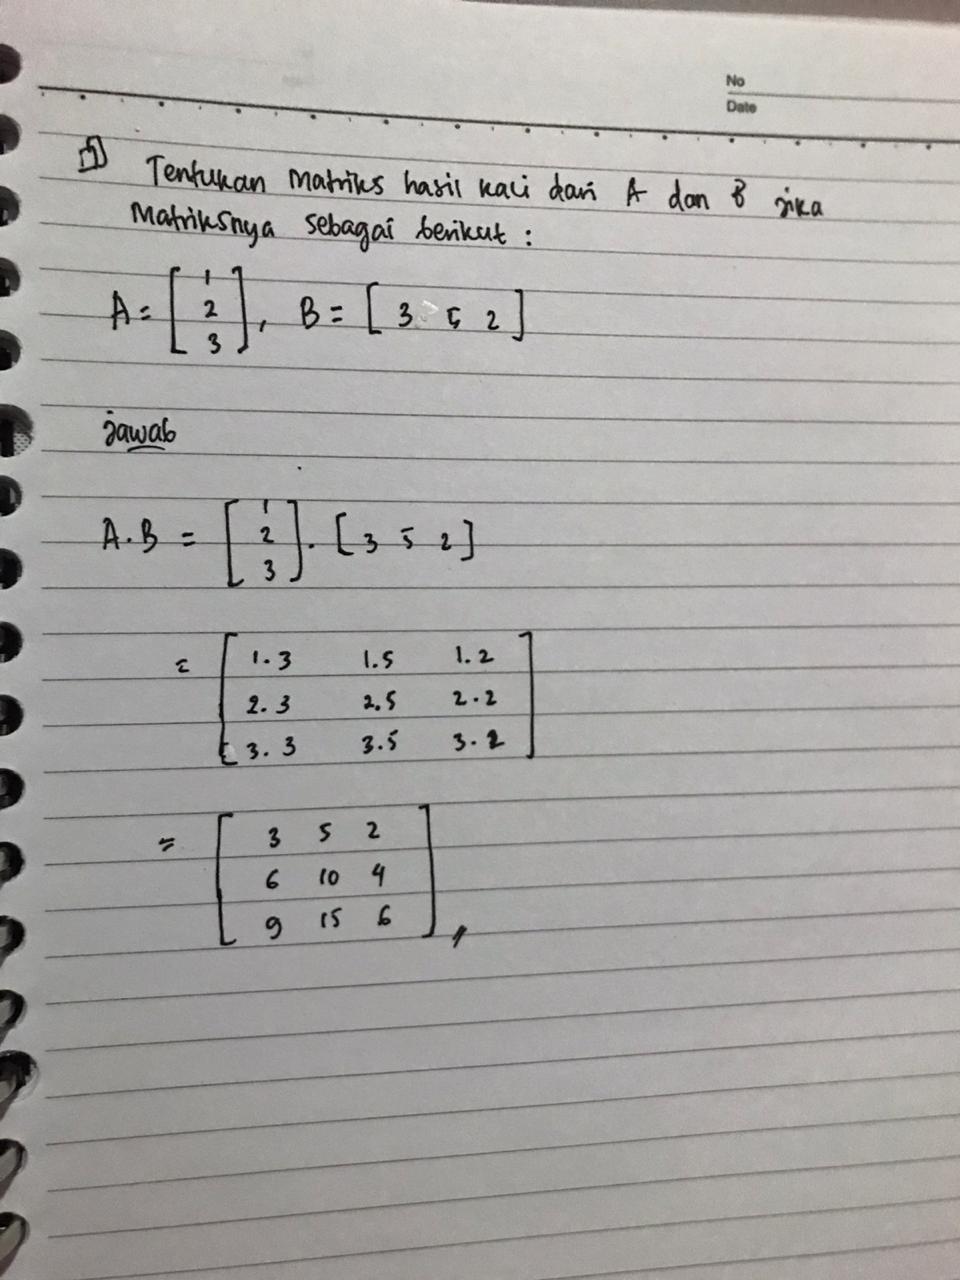 No
Date
1] Tentukan Matriks hasil kali dari A dan B jika
Matriksnya sebagai berikut :
A = [ 1
2
3 ] , B = [ 3 5 2 ]
jawab
A . B = [ 1
2
3 ] . [ 3 5 2 ]
= [ 1.3 1.5 1.2
2.3 2.5 2.2
3.3 3.5 3.2 ]
= [ 3 5 2
6 10 4
9 15 6 ] ,,